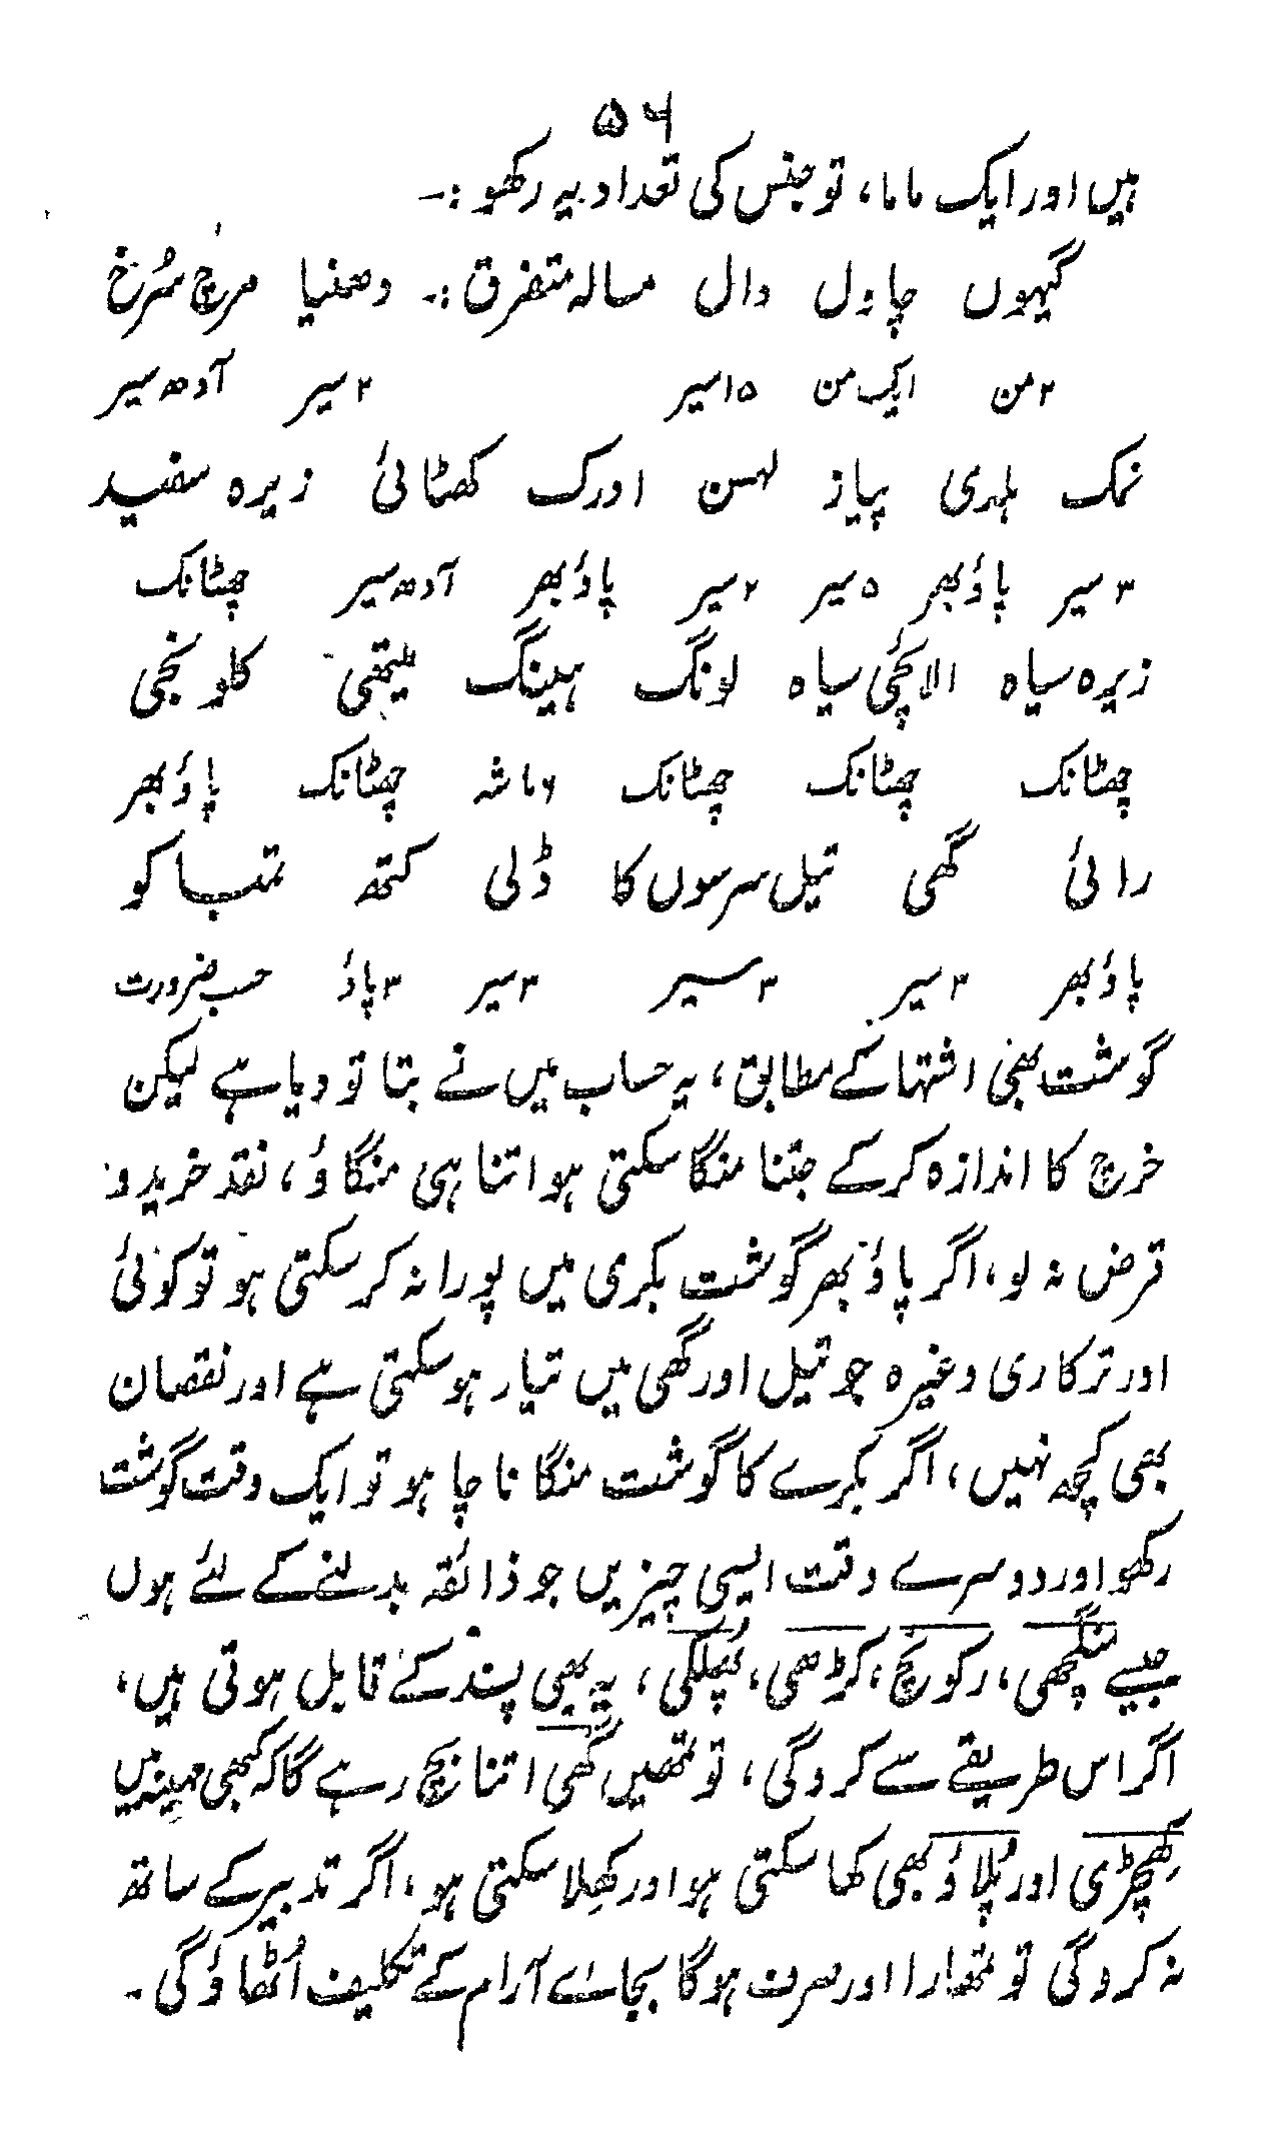 ۵۶
ہیں اور ایک ماما، تو جنس کی تعداد یہ رکھو :۔
گیہوں چاول دال مسالہ متفرق :۔ دھنیا مرچ سُرخ
۲ من ایک من ۱۵ سیر ۲ سیر آدھ سیر
نمک ہلدی پیاز لہسن ادرک کھٹائی زیرہ سفید
۳ سیر پاؤ بھر ۵ سیر ۲ سیر پاؤ بھر آدھ سیر چھٹانک
زیرہ سیاہ الائچی سیاہ لونگ ہینگ میتھی کلونجی
چھٹانک چھٹانک چھٹانک ۶ ماشہ چھٹانک پاؤ بھر
رائی گھی تیل سرسوں کا ڈلی کتھ تمباکو
پاؤ بھر ۳ سیر ۳ سیر ۳ سیر ۳ پاؤ حسب ضرورت
گوشت بھی اشتہا کے مطابق، یہ حساب میں نے بتا تو دیا ہے لیکن
خرچ کا اندازہ کر کے جتنا منگا سکتی ہو اتنا ہی منگاؤ، نقد خریدو
قرض نہ لو، اگر پاؤ بھر گوشت بکری میں پورا نہ کر سکتی ہو تو کوئی
اور ترکاری وغیرہ جو تیل اور گھی میں تیار ہو سکتی ہے اور نقصان
بھی کچھ نہیں، اگر بکرے کا گوشت منگانا چاہو تو ایک وقت گوشت
رکھو اور دوسرے وقت ایسی چیزیں جو ذائقہ بدلنے کے لئے ہوں
جیسے منگچھی، رکونچ، کڑھی، پُھلکی، یہ بھی پسند کے قابل ہوتی ہیں،
اگر اس طریقے سے کروگی، تو تمھیں گھی اتنا بچ رہے گا کہ کبھی مہینہ میں
کھچڑی اور پُلاؤ بھی کھا سکتی ہو اور کھِلا سکتی ہو، اگر تدبیر کے ساتھ
نہ کروگی تو تمھارا اور صرف ہوگا بجائے آرام کے تکلیف اُٹھاؤ گی۔